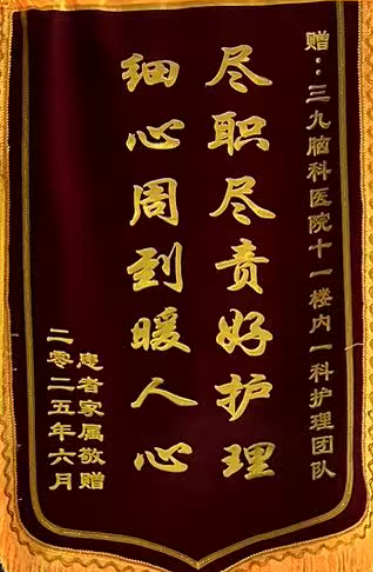 赠：三九脑科医院十一楼内一科护理团队
尽职尽责好护理
细心周到暖人心
患者家属敬赠
二零二五年六月